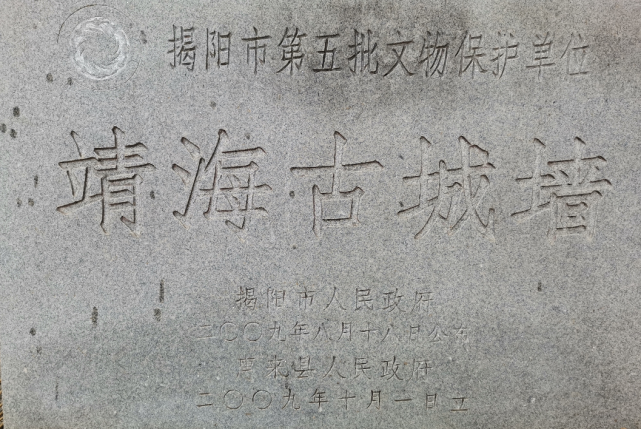 揭阳市第五批文物保护单位
靖海古城墙
揭阳市人民政府
二〇〇九年八月十八日公布
惠来县人民政府
二〇〇九年十月一日立